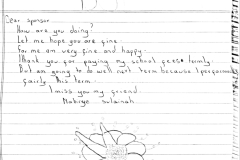 Dear sponsor
How are you doing?
Let me hope you are fine.
For me am very fine and happy.
Thank you for paying my school fees termly.
But am going to do well next term because I performed
fairly this term.
I miss you my friend